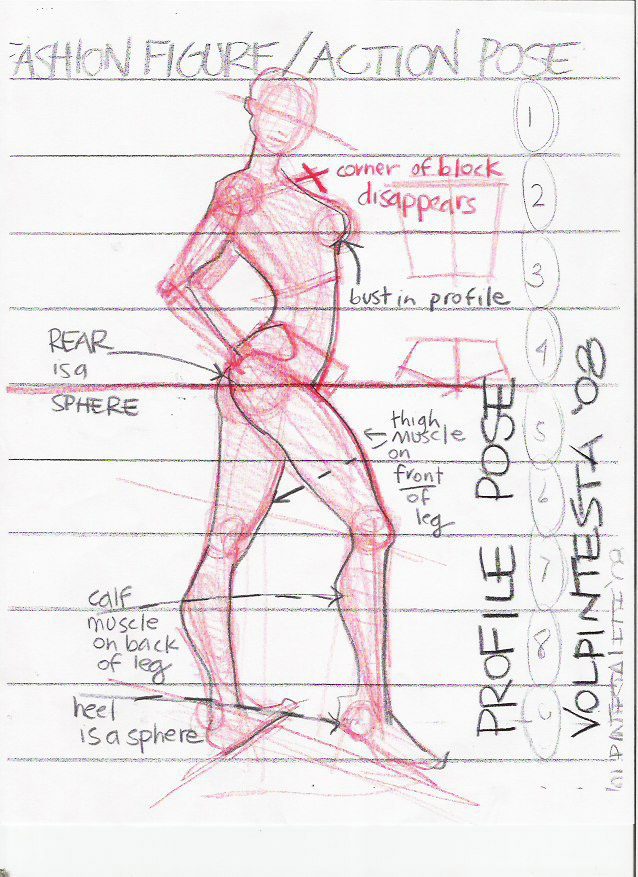 FASHION FIGURE/ACTION POSE
1
corner of block
disappears
2
3
bust in profile
4
REAR
is a
SPHERE
thigh
muscle
on
front
of
leg
5
6
7
calf
muscle
on back
of leg
8
heel
is a sphere
PROFILE POSE
VOLPINTESTA '08